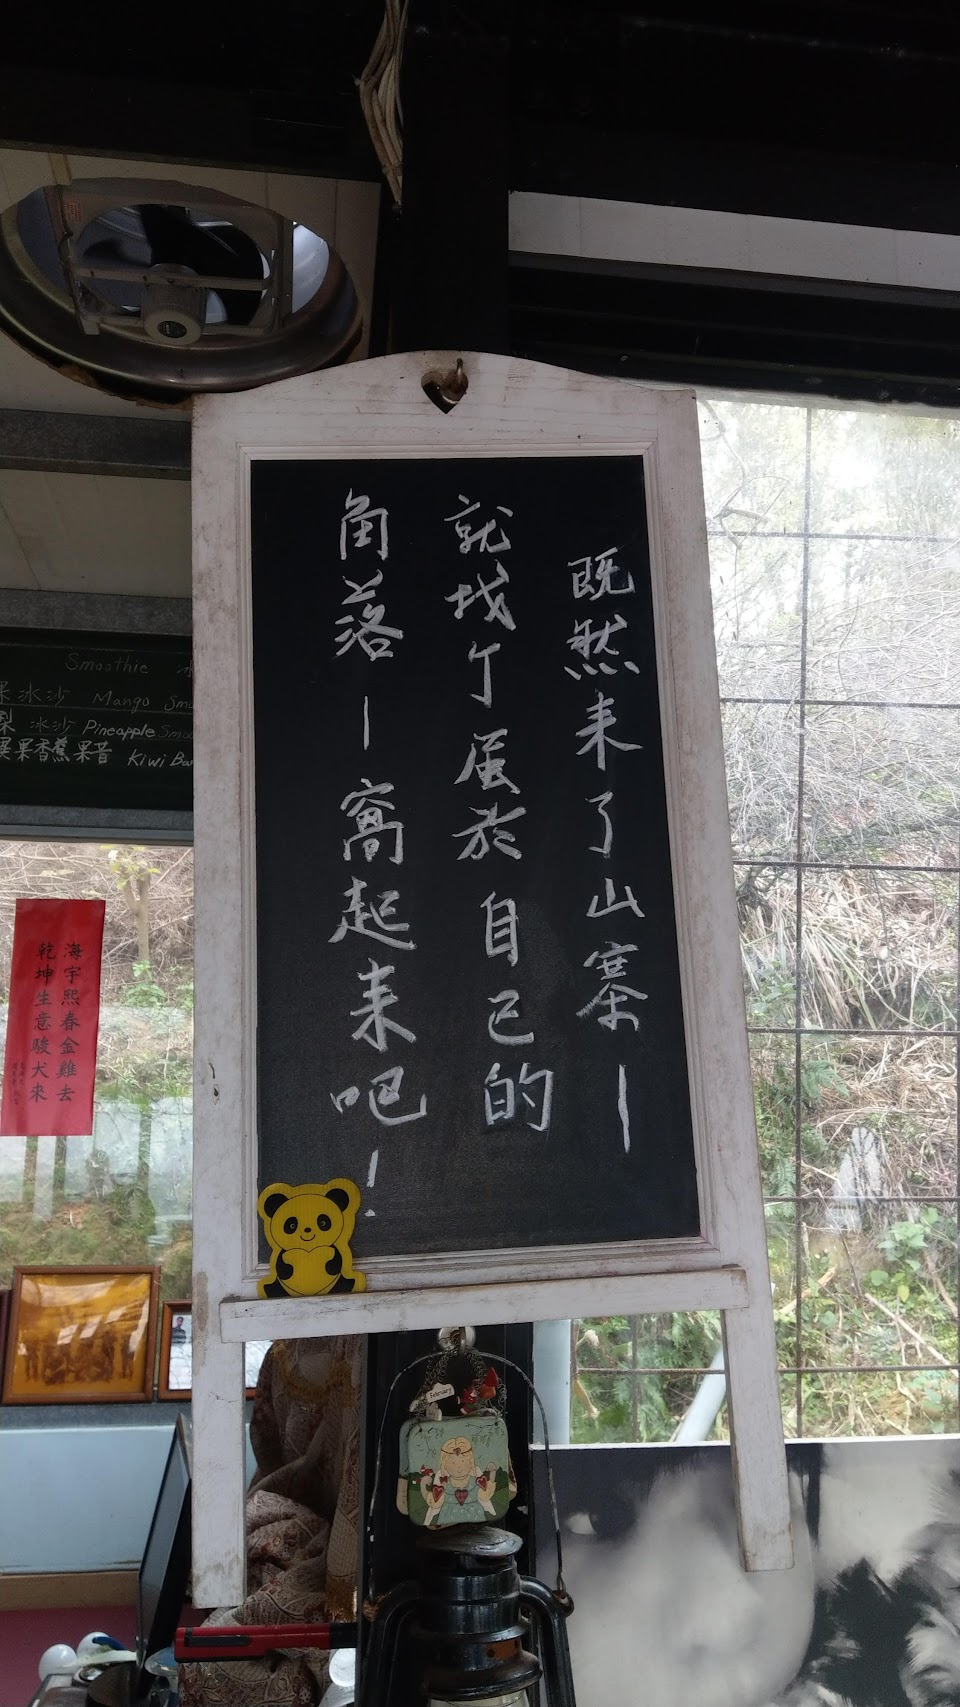 既然来了山寨—
就找个屬於自己的
角落—窩起来吧!
Smoothie 冰
果冰沙 Mango Smo
梨 冰沙 Pineapple Smoo
果香蕉果昔 Kiwi Ba
海宇熙春金雞去
乾坤生意駿犬來
February